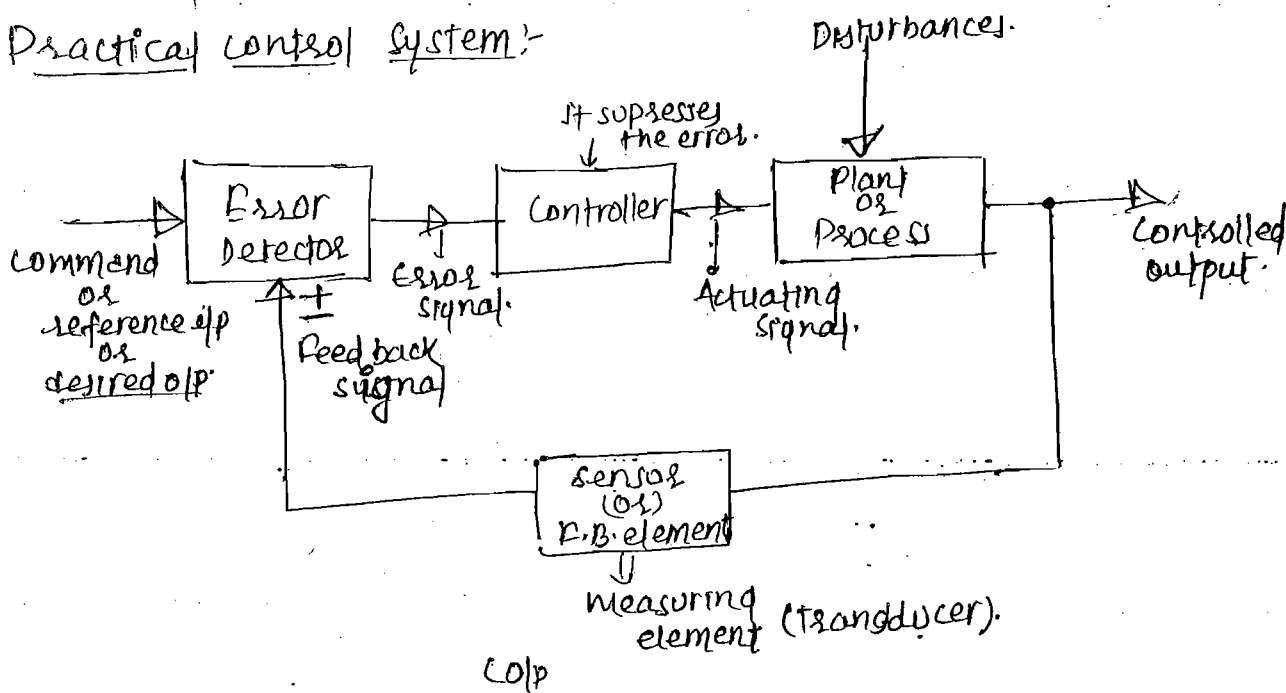 Practical control system:-
Disturbances.
It supresses
the error.
Error
Detector
Controller
Plant
or
Process
command
or
reference i/p
or
desired o/p.
Error
signal.
Actuating
signal.
Controlled
output.
±
Feed back
signal
sensor
(or)
F.B. element
Measuring
element (Transducer).
(o/p